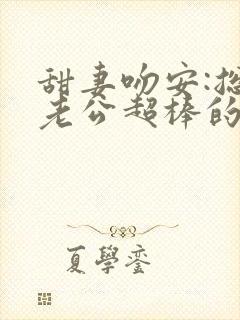 甜妻吻安:总
老公超棒的
夏學銮